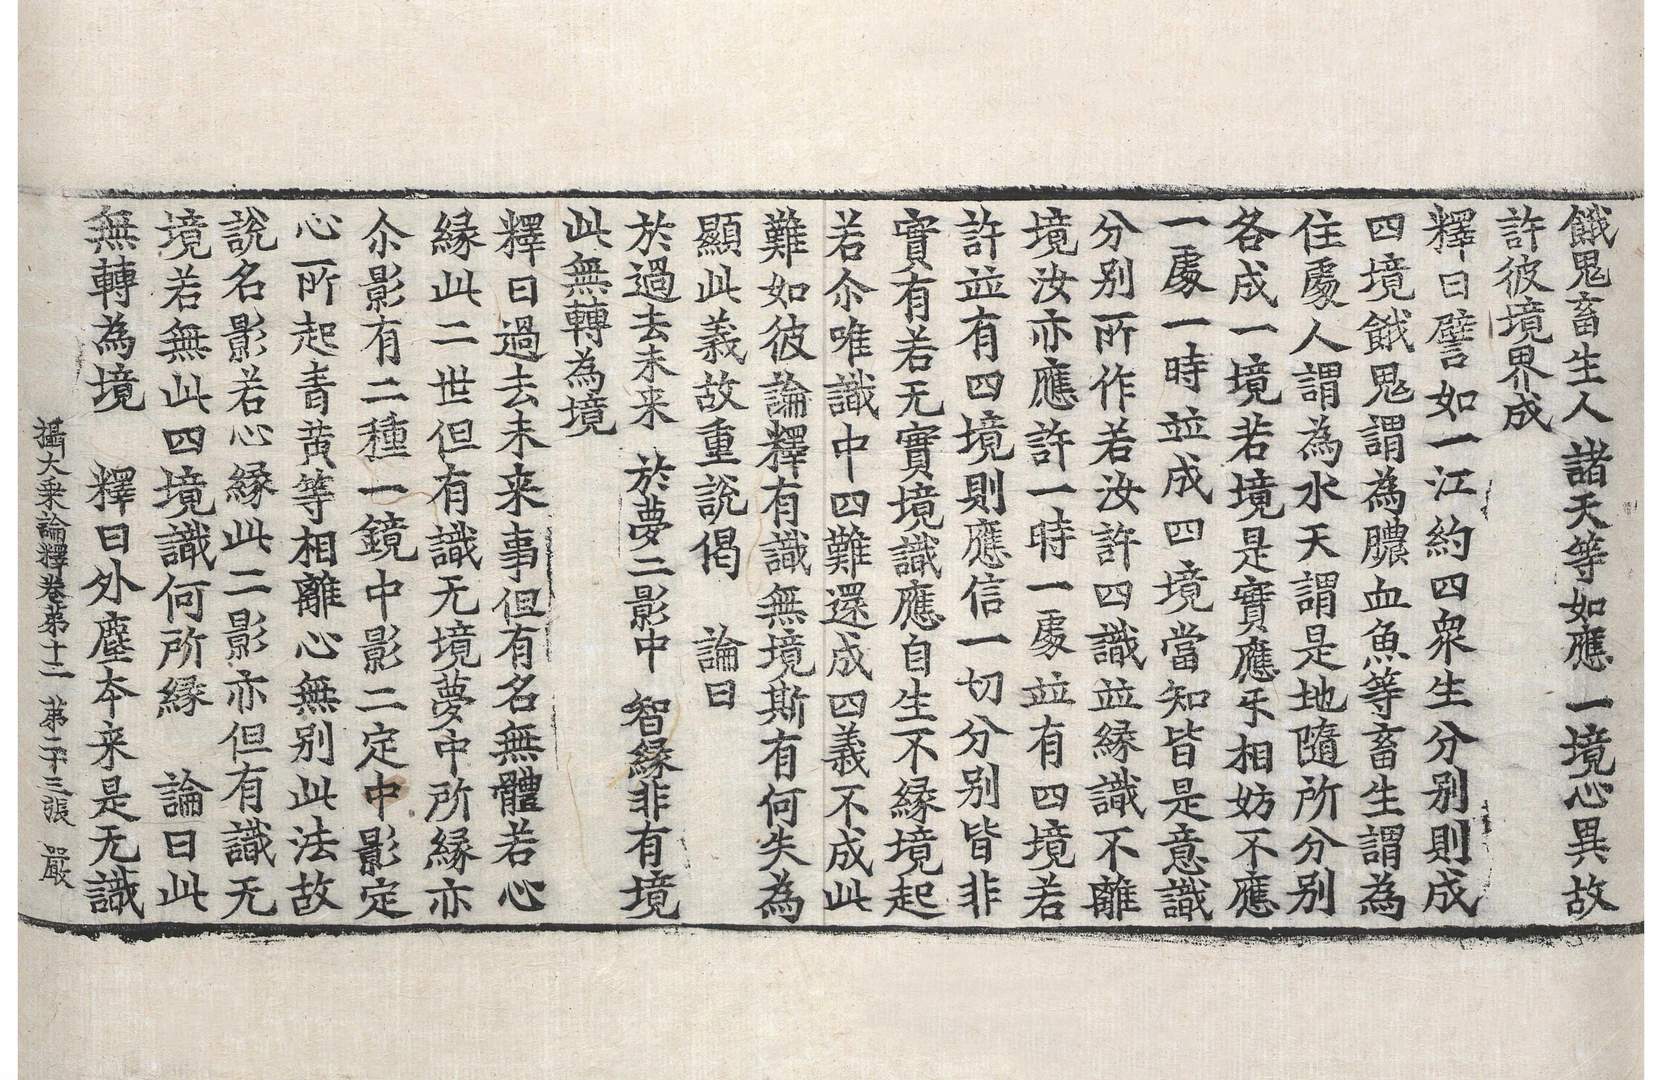 餓鬼畜生人 諸天等如應 一境心異故
許彼境界成
釋曰譬如一江約四衆生分別則成
四境餓鬼謂為膿血魚等畜生謂為
住處人謂為水天謂是地隨所分別
各成一境若境是實應乐相妨不應
一處一時並成四境當知皆是意識
分別所作若汝許四識並緣識不離
境汝亦應許一時一處並有四境若
許並有四境則應信一切分別皆非
實有若无實境識應自生不緣境起
若尒唯識中四難還成四義不成此
難如彼論釋有識無境斯有何失為
顯此義故重說偈 論曰
於過去未来 於夢二影中 智緣非有境
此無轉為境
釋曰過去未来事但有名無體若心
緣此二世但有識无境夢中所緣亦
尒影有二種一鏡中影二定中影定
心所起青黃等相離心無別此法故
說名影若心緣此二影亦但有識无
境若無此四境識何所緣 論曰此
無轉為境 釋曰外塵夲来是无識
攝大乗論釋卷苐十二 苐二十三張 嚴